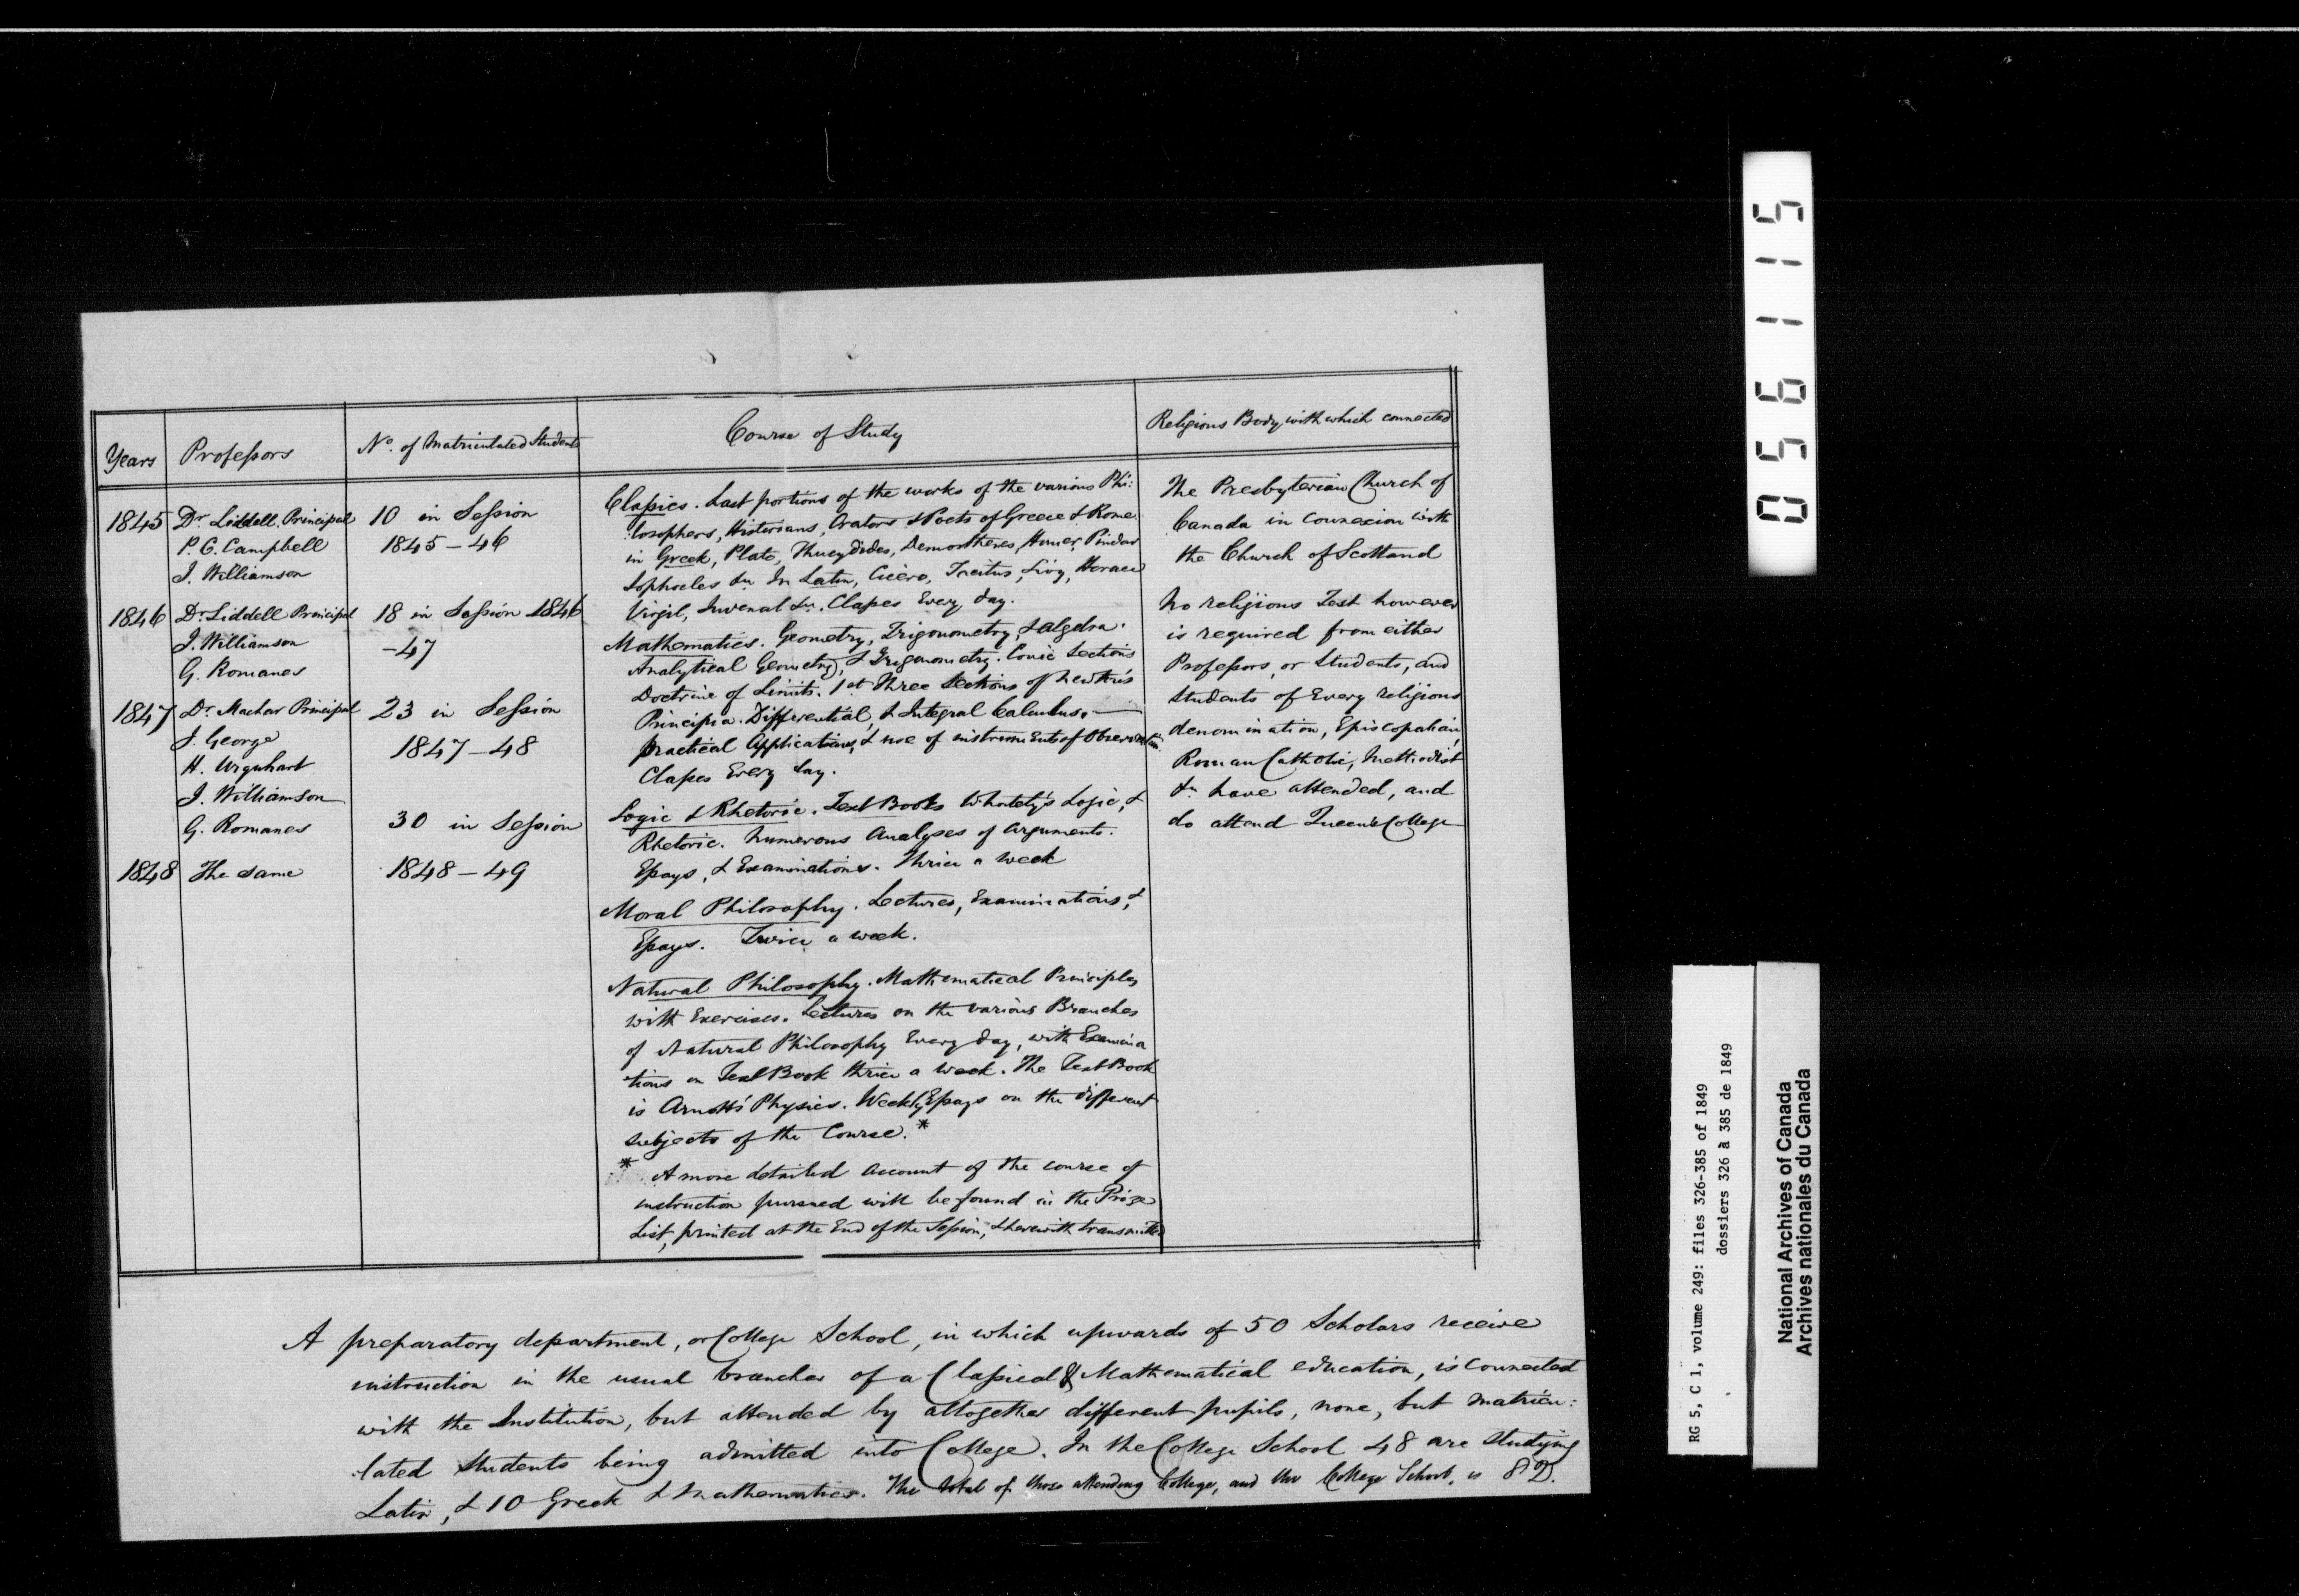 Years
Professors
No. of Matriculated Students
Course of Study
Religious Body with which connected
1845
Dr. Liddell, Principal
P. C. Campbell
J. Williamson
10 in Session
1845-46
1846
Dr. Liddell Principal
J. Williamson
G. Romanes
18 in Session 1846
-47
1847
Dr. Machar Principal
J. George
H. Urquhart
J. Williamson
G. Romanes
23 in Session
1847-48
30 in Session
1848
The same
1848-49
Classics. Last portions of the works of the various Phi:
:losophers, Historians, Orators & Poets of Greece & Rome.
in Greek, Plato, Thucydides, Demosthenes, Homer, Pindar
Sophocles &c. In Latin, Cicero, Tacitus, Livy, Horace
Virgil, Juvenal &c. Classes Every day.
Mathematics. Geometry, Trigonometry, & Algebra.
Analytical Geometry, & Trigonometry. Conic Sections
Doctrine of Limits. 1st Three Sections of Newton's
Principia. Differential, & Integral Calculus.
Practical Applications, & use of instruments of Observation
Classes Every day.
Logic & Rhetoric. Text Books Whately's Logic, &
Rhetoric. Numerous Analyses of Arguments.
Essays, & Examinations. Thrice a week
Moral Philosophy. Lectures, Examinations, &
Essays. Twice a week.
Natural Philosophy. Mathematical Principles
with Exercises. Lectures on the various Branches
of Natural Philosophy Every day, with Examina
tions on Text Book thrice a week. The Text Book
is Arnott's Physics. Weekly Essays on the different
subjects of the Course.*
* A more detailed account of the course of
instruction pursued will be found in the Prize
List, printed at the End of the Session, & herewith transmitted
The Presbyterian Church of
Canada in Connexion with
the Church of Scotland
No religious Test however
is required from either
Professors, or Students, and
Students of Every religious
denomination, Episcopalian,
Roman Catholic, Methodist
&c. have attended, and
do attend Queen's College
A preparatory department, or College School, in which upwards of 50 Scholars receive
instruction in the usual branches of a Classical & Mathematical education, is connected
with the Institution, but attended by altogether different pupils, none, but matricu:
:lated Students being admitted into College. In the College School 48 are studying
Latin, & 10 Greek & Mathematics. The total of those attending College, and the College School, is 82.
056115
RG 5, C 1, volume 249: files 326-385 of 1849
dossiers 326 à 385 de 1849
National Archives of Canada
Archives nationales du Canada